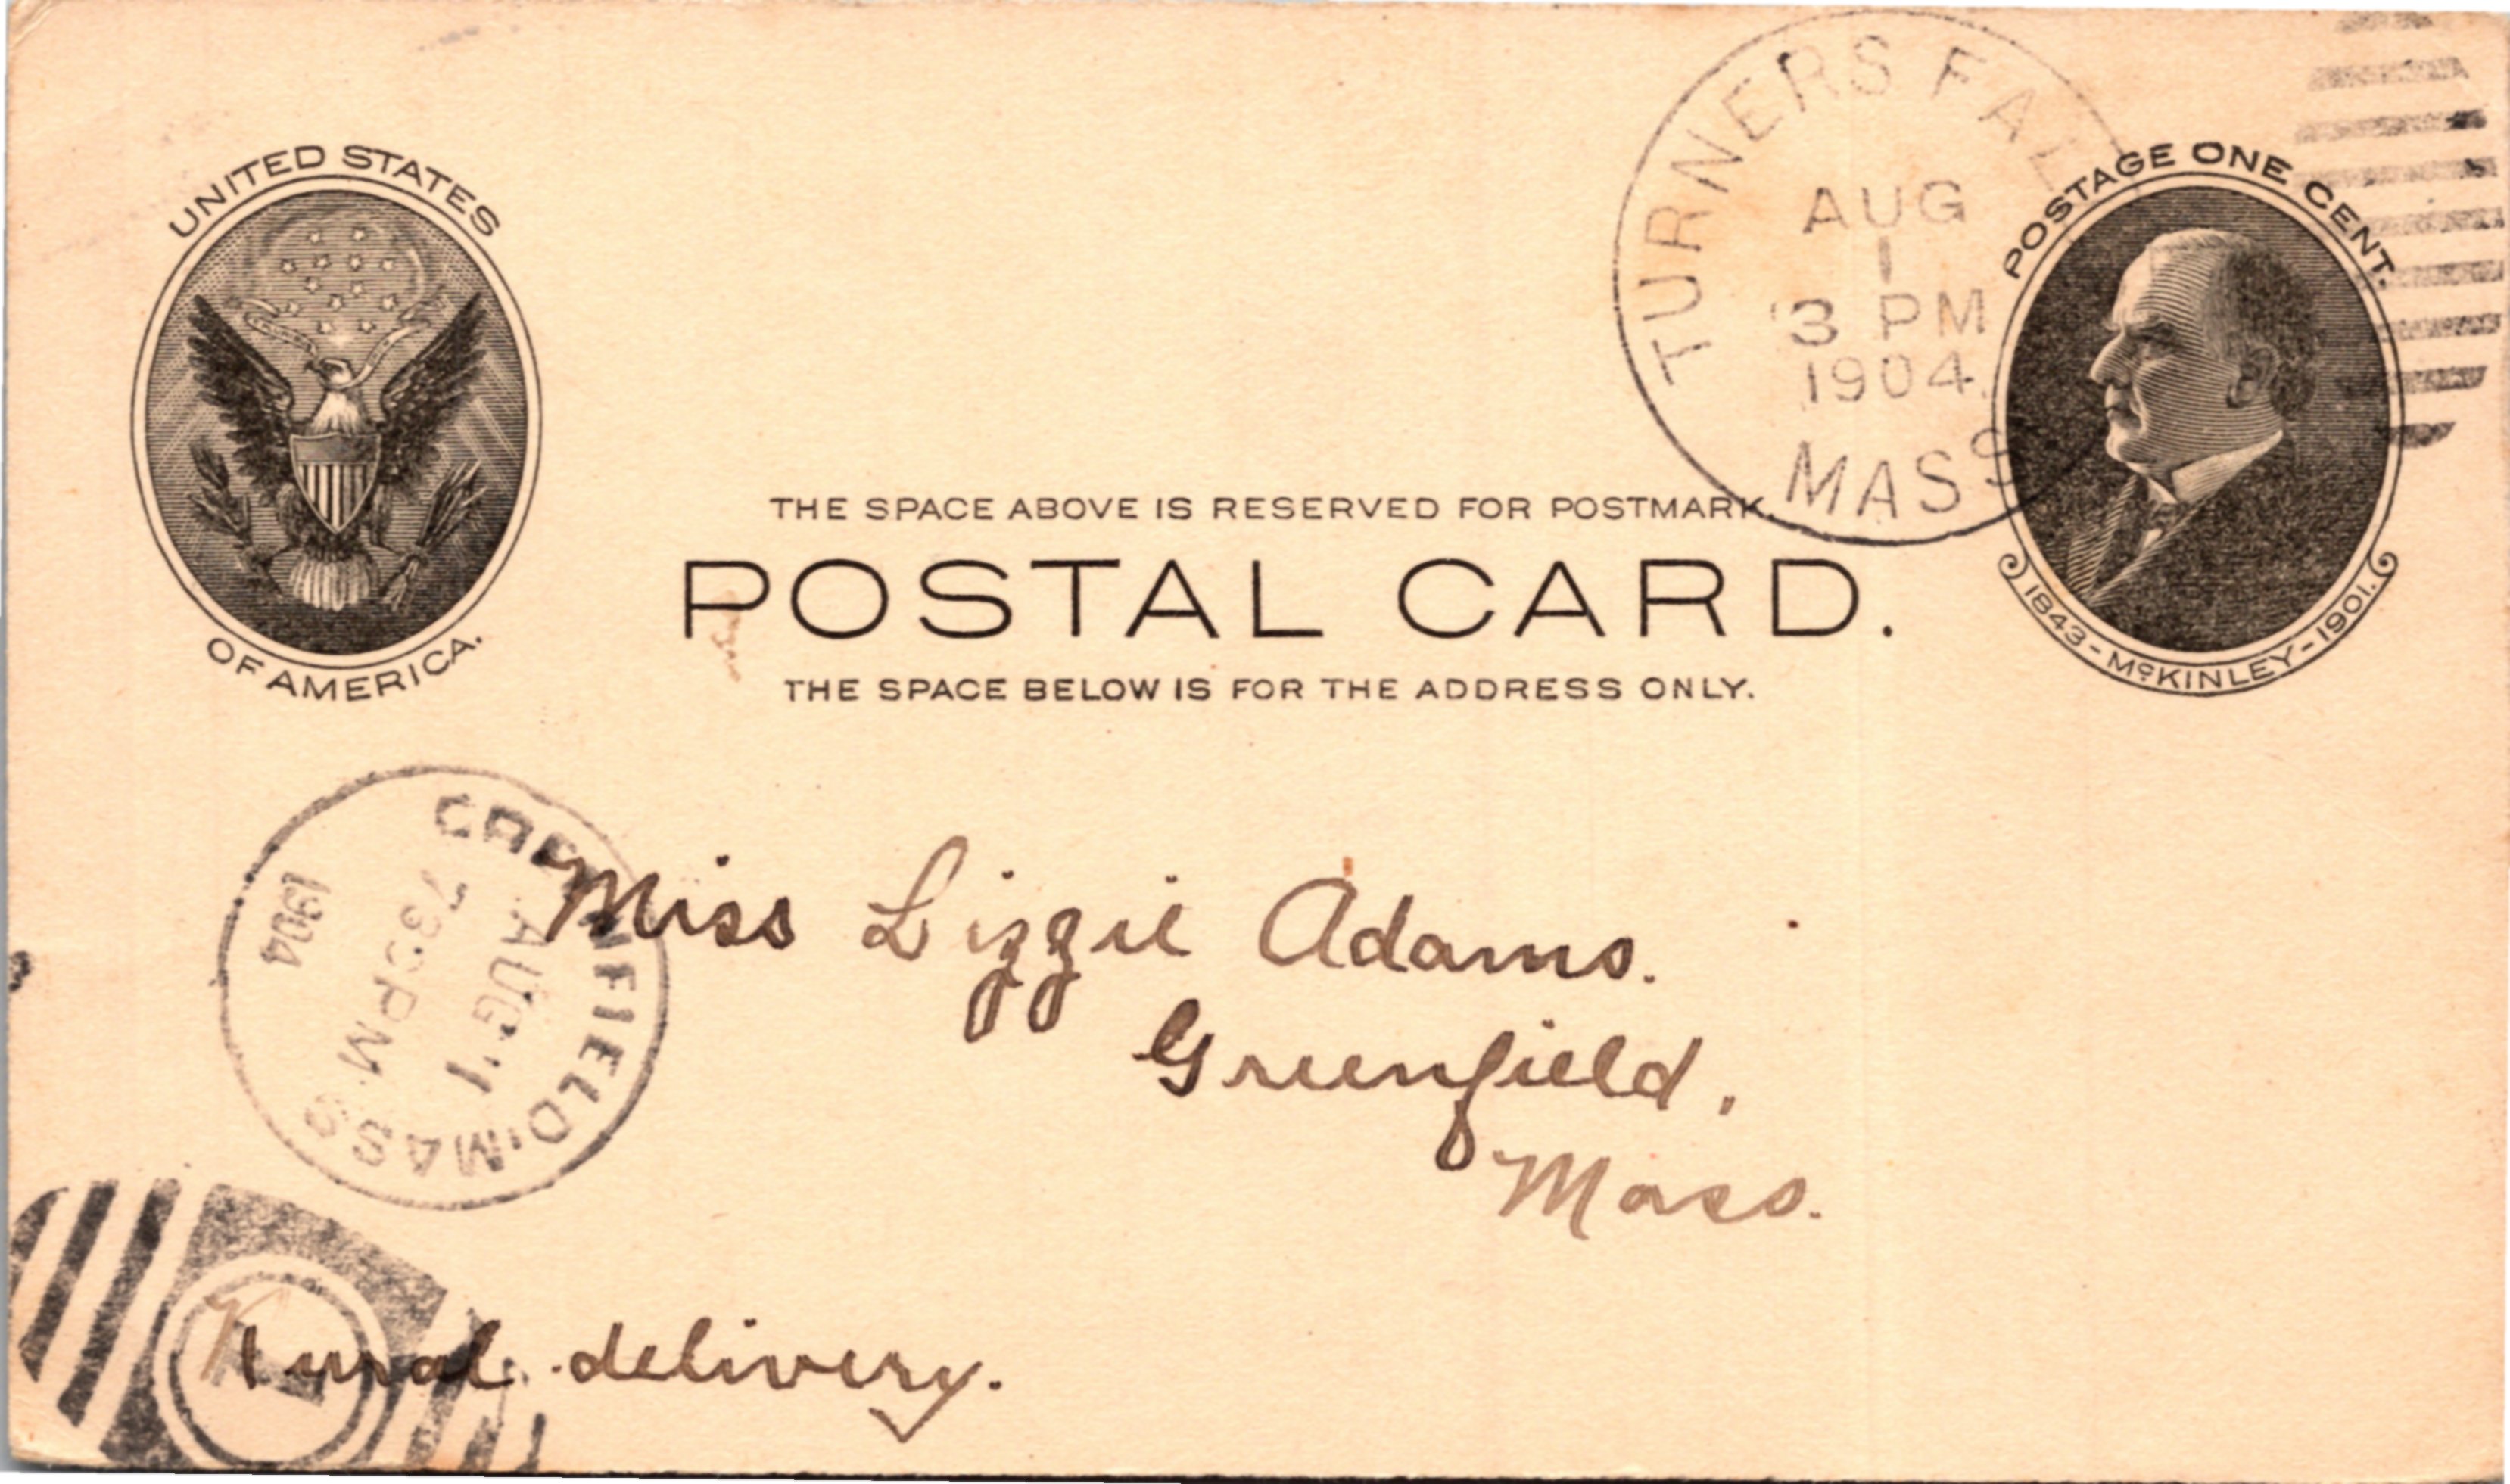 UNITED STATES
OF AMERICA.
TURNERS FALL
AUG
1
3 PM
1904
MASS
POSTAGE ONE CENT.
1843-McKINLEY-1901.
THE SPACE ABOVE IS RESERVED FOR POSTMARK.
POSTAL CARD.
THE SPACE BELOW IS FOR THE ADDRESS ONLY.
NFIELD, MASS
AUG 1
730PM
1904
Miss Lizzie Adams.
Greenfield,
Mass.
Rural delivery.